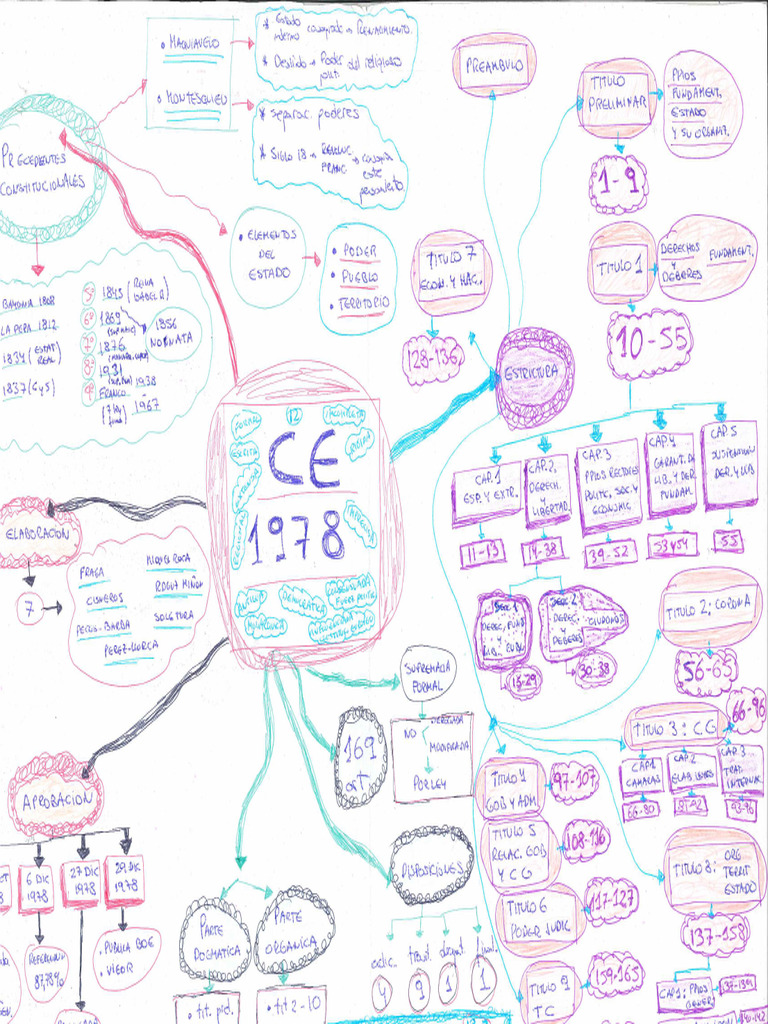 • MAQUIAVELO
• MONTESQUIEU
* Estado
moderno
RENACIMIENTO.
* Deslindo → Poder del religioso
polit.
* Separac. poderes
* Siglo 18 → REVOLUC.
FRANC.
este
pensamiento
PRECEDENTES
CONSTITUCIONALES
• ELEMENTOS
DEL
ESTADO
• PODER
• PUEBLO
• TERRITORIO
BAYONA 1808
LA PEPA 1812
1834 (ESTAT
REAL
1837 (
5º 1845 (REINA
ISABEL II)
6º 1869
7º 1876
8º 1931
9º FRANCO
1938
1967
1856
NO NATA
PREAMBULO
TITULO
PRELIMINAR
PPIOS
FUNDAMENT.
ESTADO
Y SU ORGANIZ.
1-9
TITULO 1
DERECHOS
Y
DEBERES
FUNDAMENT.
10-55
TITULO 7
ECON. Y HAC.
128-136
ESTRUCTURA
CAP. 1
ESP. Y EXTR.
11-13
CAP. 2,
DERECH.
Y
LIBERTAD.
14-38
CAP. 3
PPIOS RECTORES
POLITIC, SOC. Y
ECONOMIC
39-52
CAP. 4
GARANT. DE
LIB. Y DER.
FUNDAM.
53 y 54
CAP. 5
SUSPENSION
DER. Y LIB
55
SECC. 1
DEREC. FUND
Y
LIB. PUBLI
15-29
SECC. 2
DEREC.
Y
DEBERES
CIUDADNOS
30-38
FORMAL
ESCRITA
EXTENSA
12
INCOMPLETA
RIGIDA
CE
1978
DEMOCRATICA
CONSENSUADA
FUERZ POLITIC.
ELABORACION
7
FRAGA
CISNEROS
PECES-BARBA
PEREZ-LLORCA
MIQUEL ROCA
RDGUZ MIÑON
SOLETURA
APROBACION
6 DIC
1978
27 DIC
1978
29 DIC
1978
REFERENDUM
87,78%
• PUBLICA BOE
• VIGOR
SUPREMACIA
FORMAL
NO
MODIFICADA
POR LEY
169
art
DISPOSICIONES
adic.
transit.
derogat.
final.
4
9
1
1
PARTE
DOGMATICA
PARTE
ORGANICA
• tit. prel.
• tit 2-10
TITULO 2: CORONA
56-65
TITULO 3: CG
66-96
CAP.1
CAMARAS
66-80
CAP.2
ELAB LEYES
81-92
CAP. 3
TRAT.
INTERNAC
93-96
TITULO 4
GOB Y ADM
97-107
TITULO 5
RELAC. GOB
Y CG
108-116
TITULO 6
PODER JUDIC
117-127
TITULO 9
TC
159-165
TITULO 8: ORG
TERRIT
ESTADO
137-158
CAP 1: PPIOS
GENER
137-139
140-142